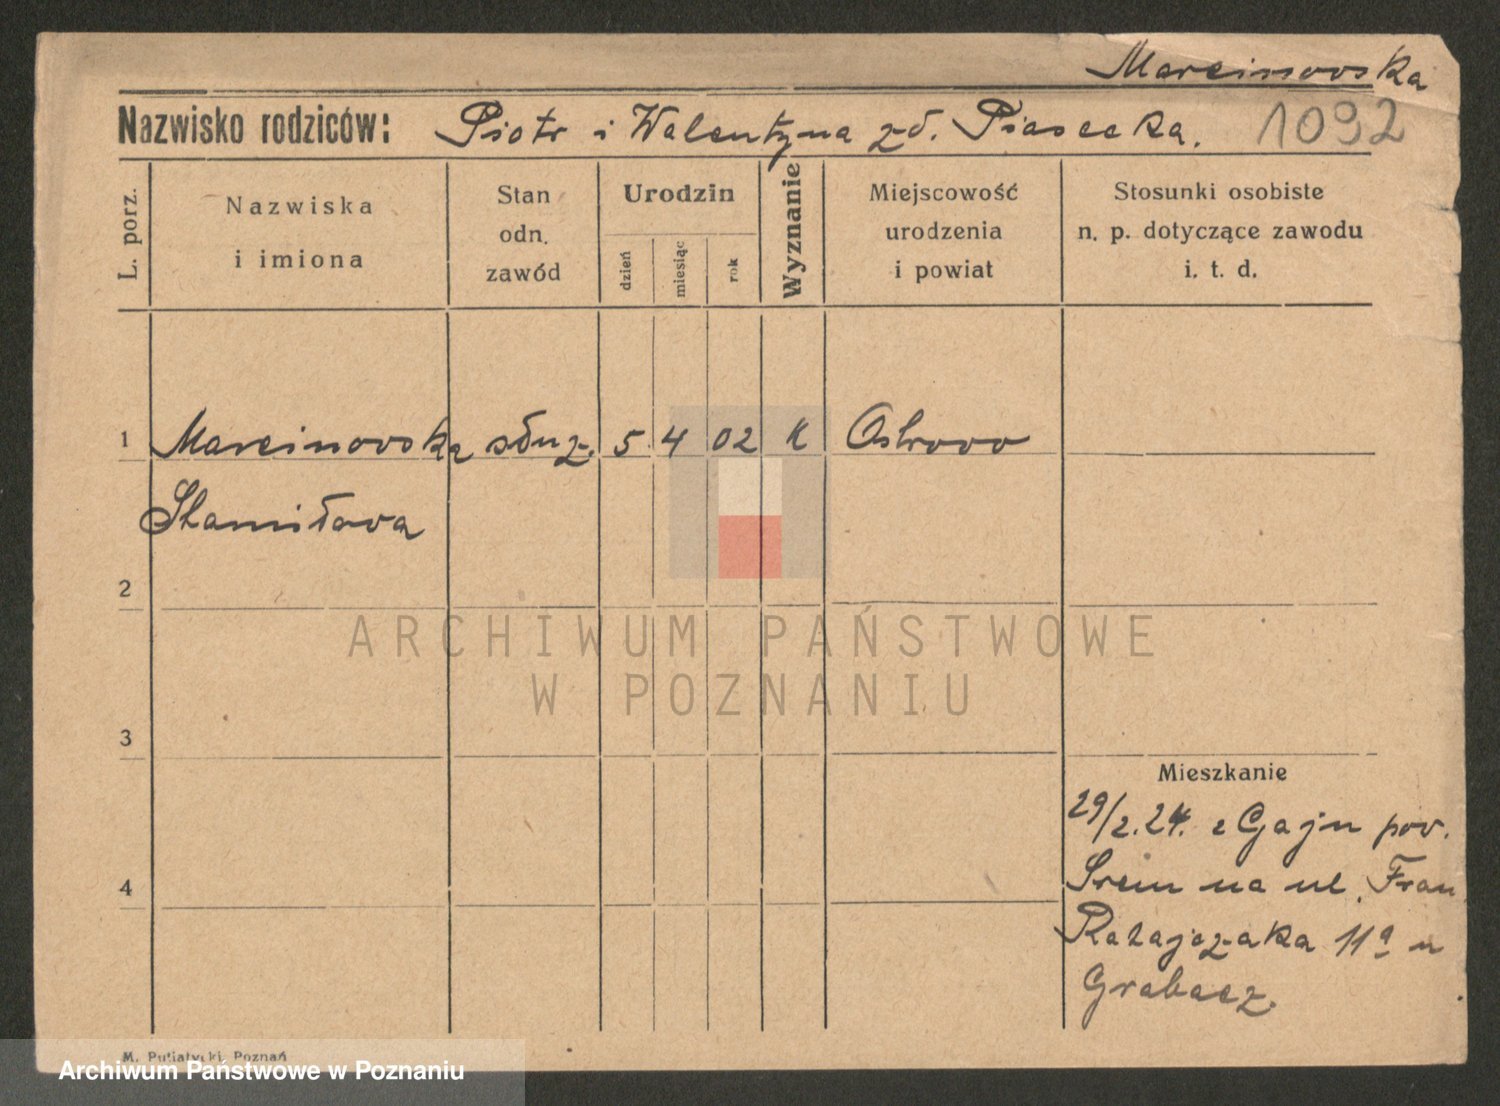 Marcinowska
Nazwisko rodziców: Piotr i Walentyna zd. Piasecka. 1092
L. porz.
Nazwiska
i imiona
Stan
odn.
zawód
Urodzin
dzień
miesiąc
rok
Wyznanie
Miejscowość
urodzenia
i powiat
Stosunki osobiste
n. p. dotyczące zawodu
i. t. d.
1 Marcinowska służ. 5 4 02 K Ostrowo
Stanisława
2
ARCHIWUM PAŃSTWOWE
W POZNANIU
3
Mieszkanie
29/2.24. z Gaju pow.
4 Śrem na ul. Fran
Ratajczaka 11a u
Grabacz.
M. Putiatycki, Poznań
Archiwum Państwowe w Poznaniu